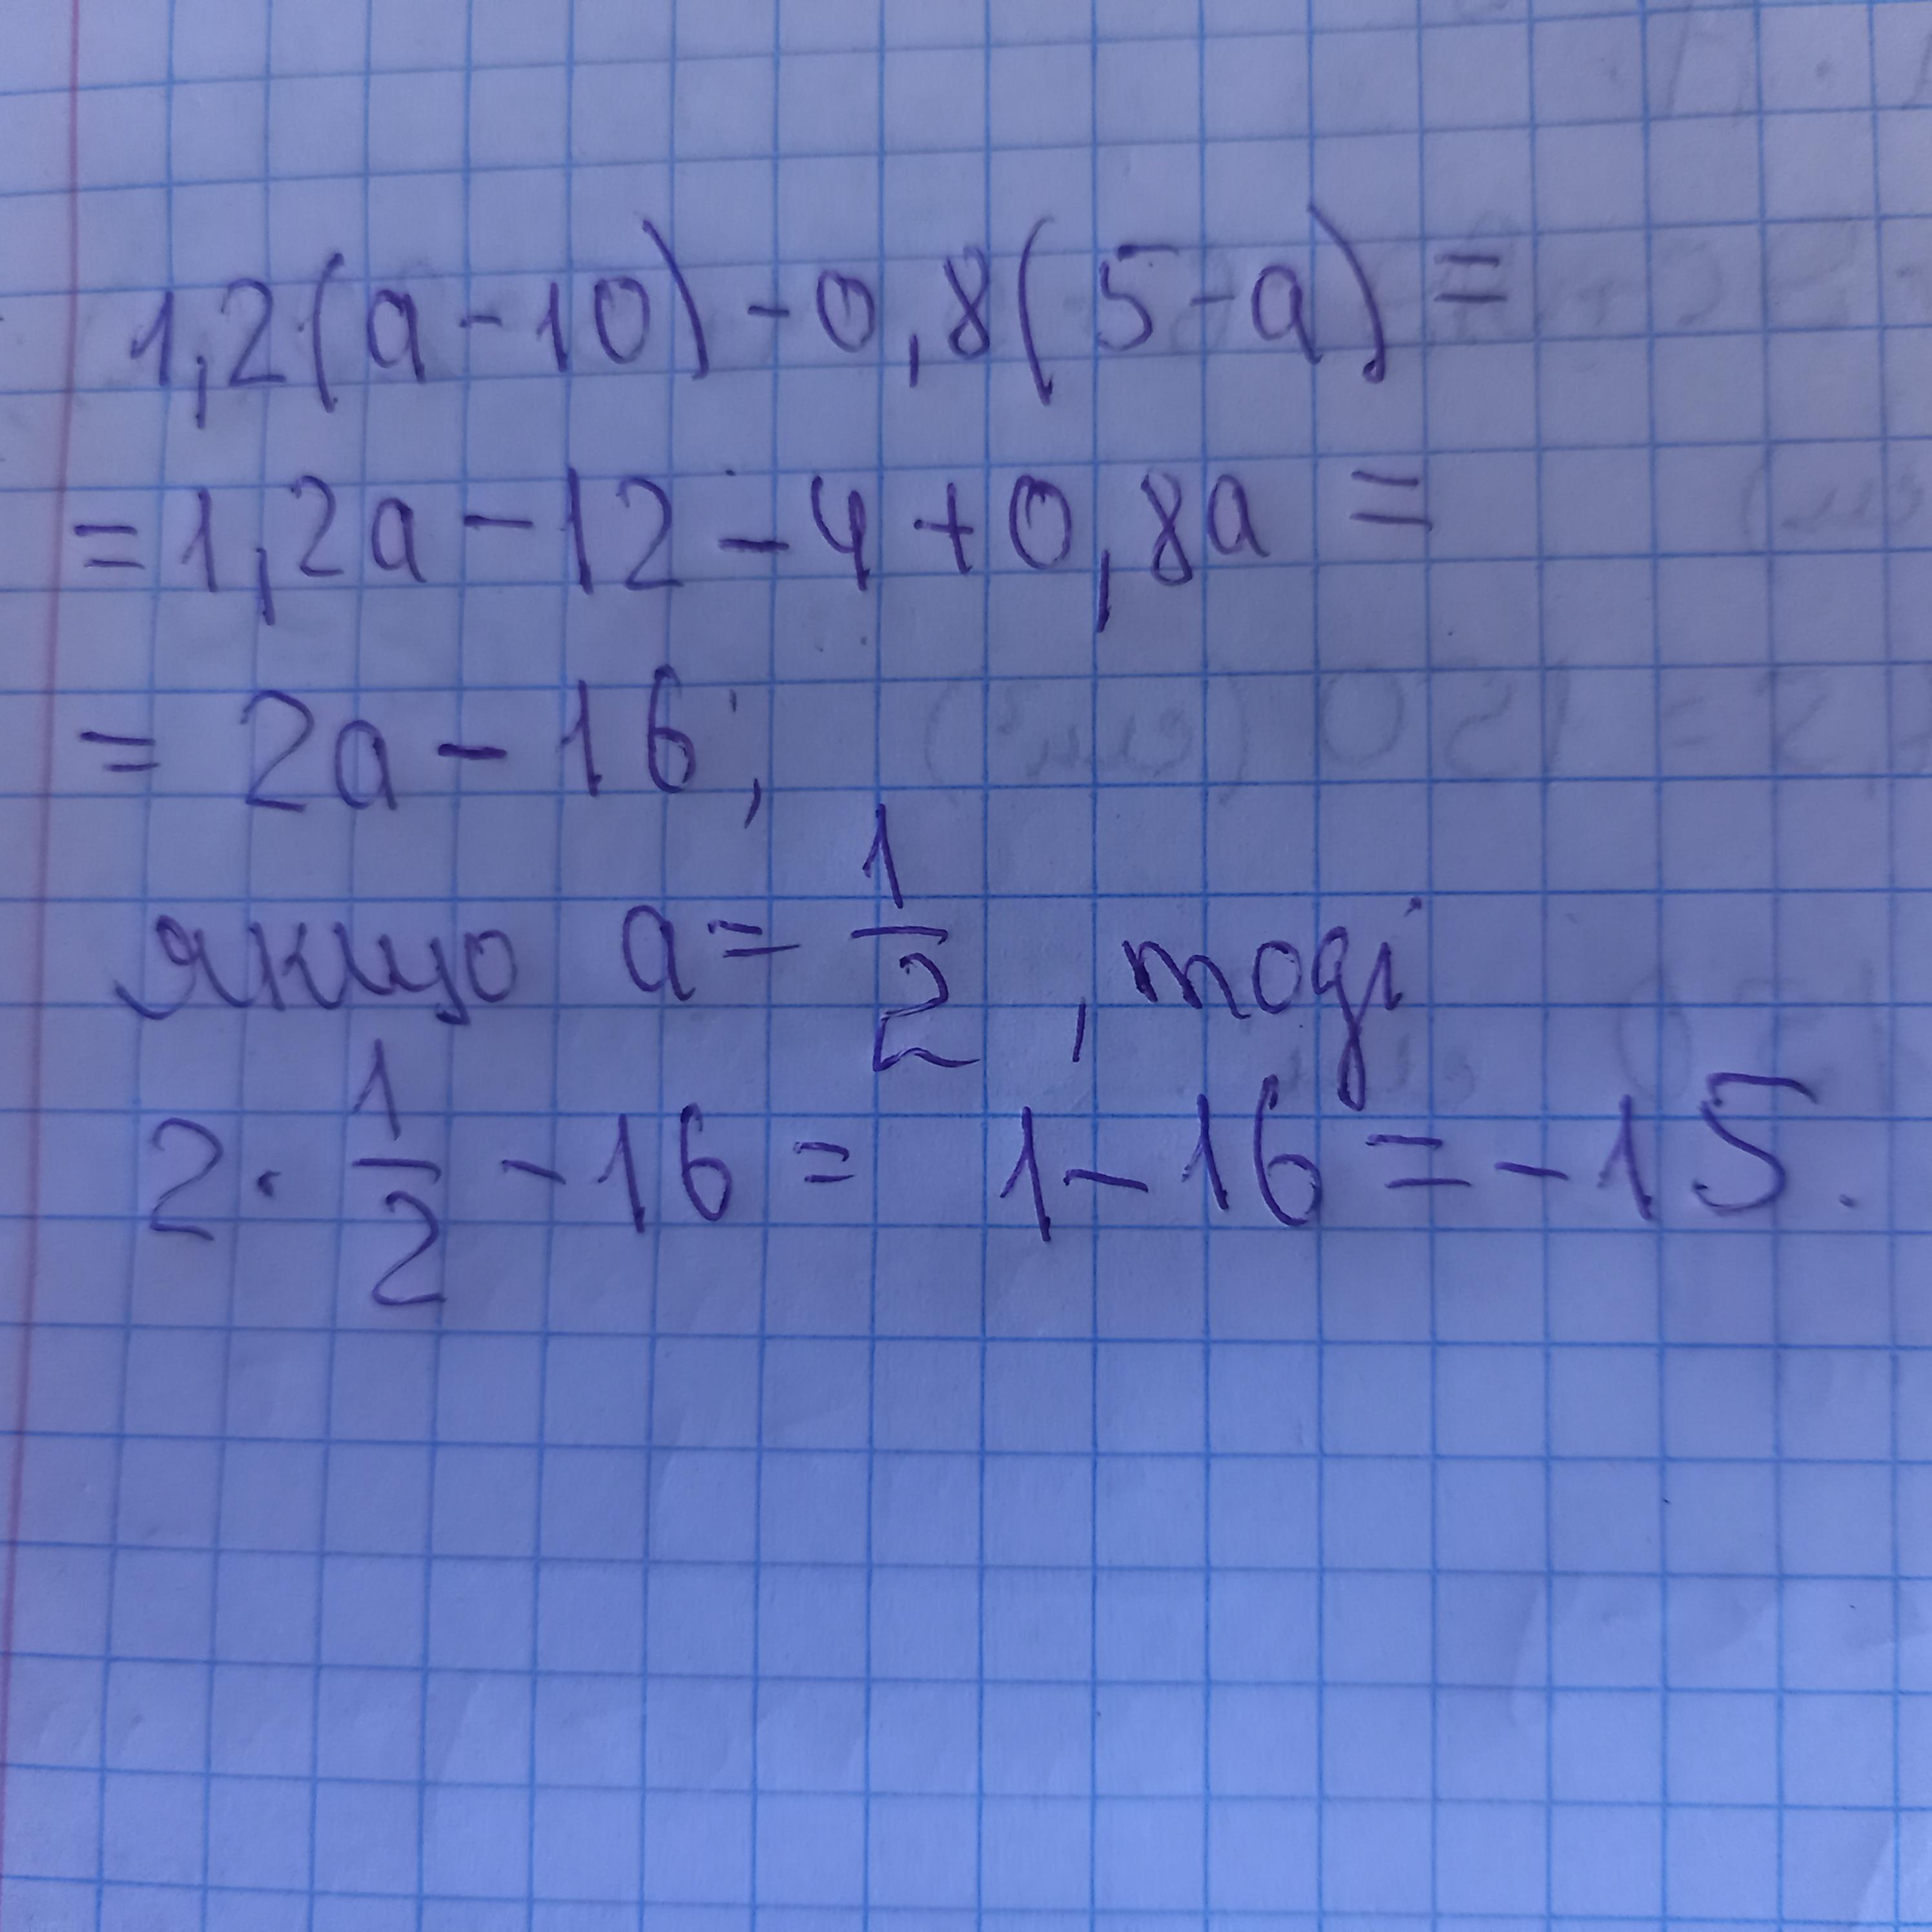 1,2(a-10)-0,8(5-a)=
=1,2a-12-4+0,8a=
=2a-16;
якщо a=1/2, тоді
2·1/2-16= 1-16=-15.